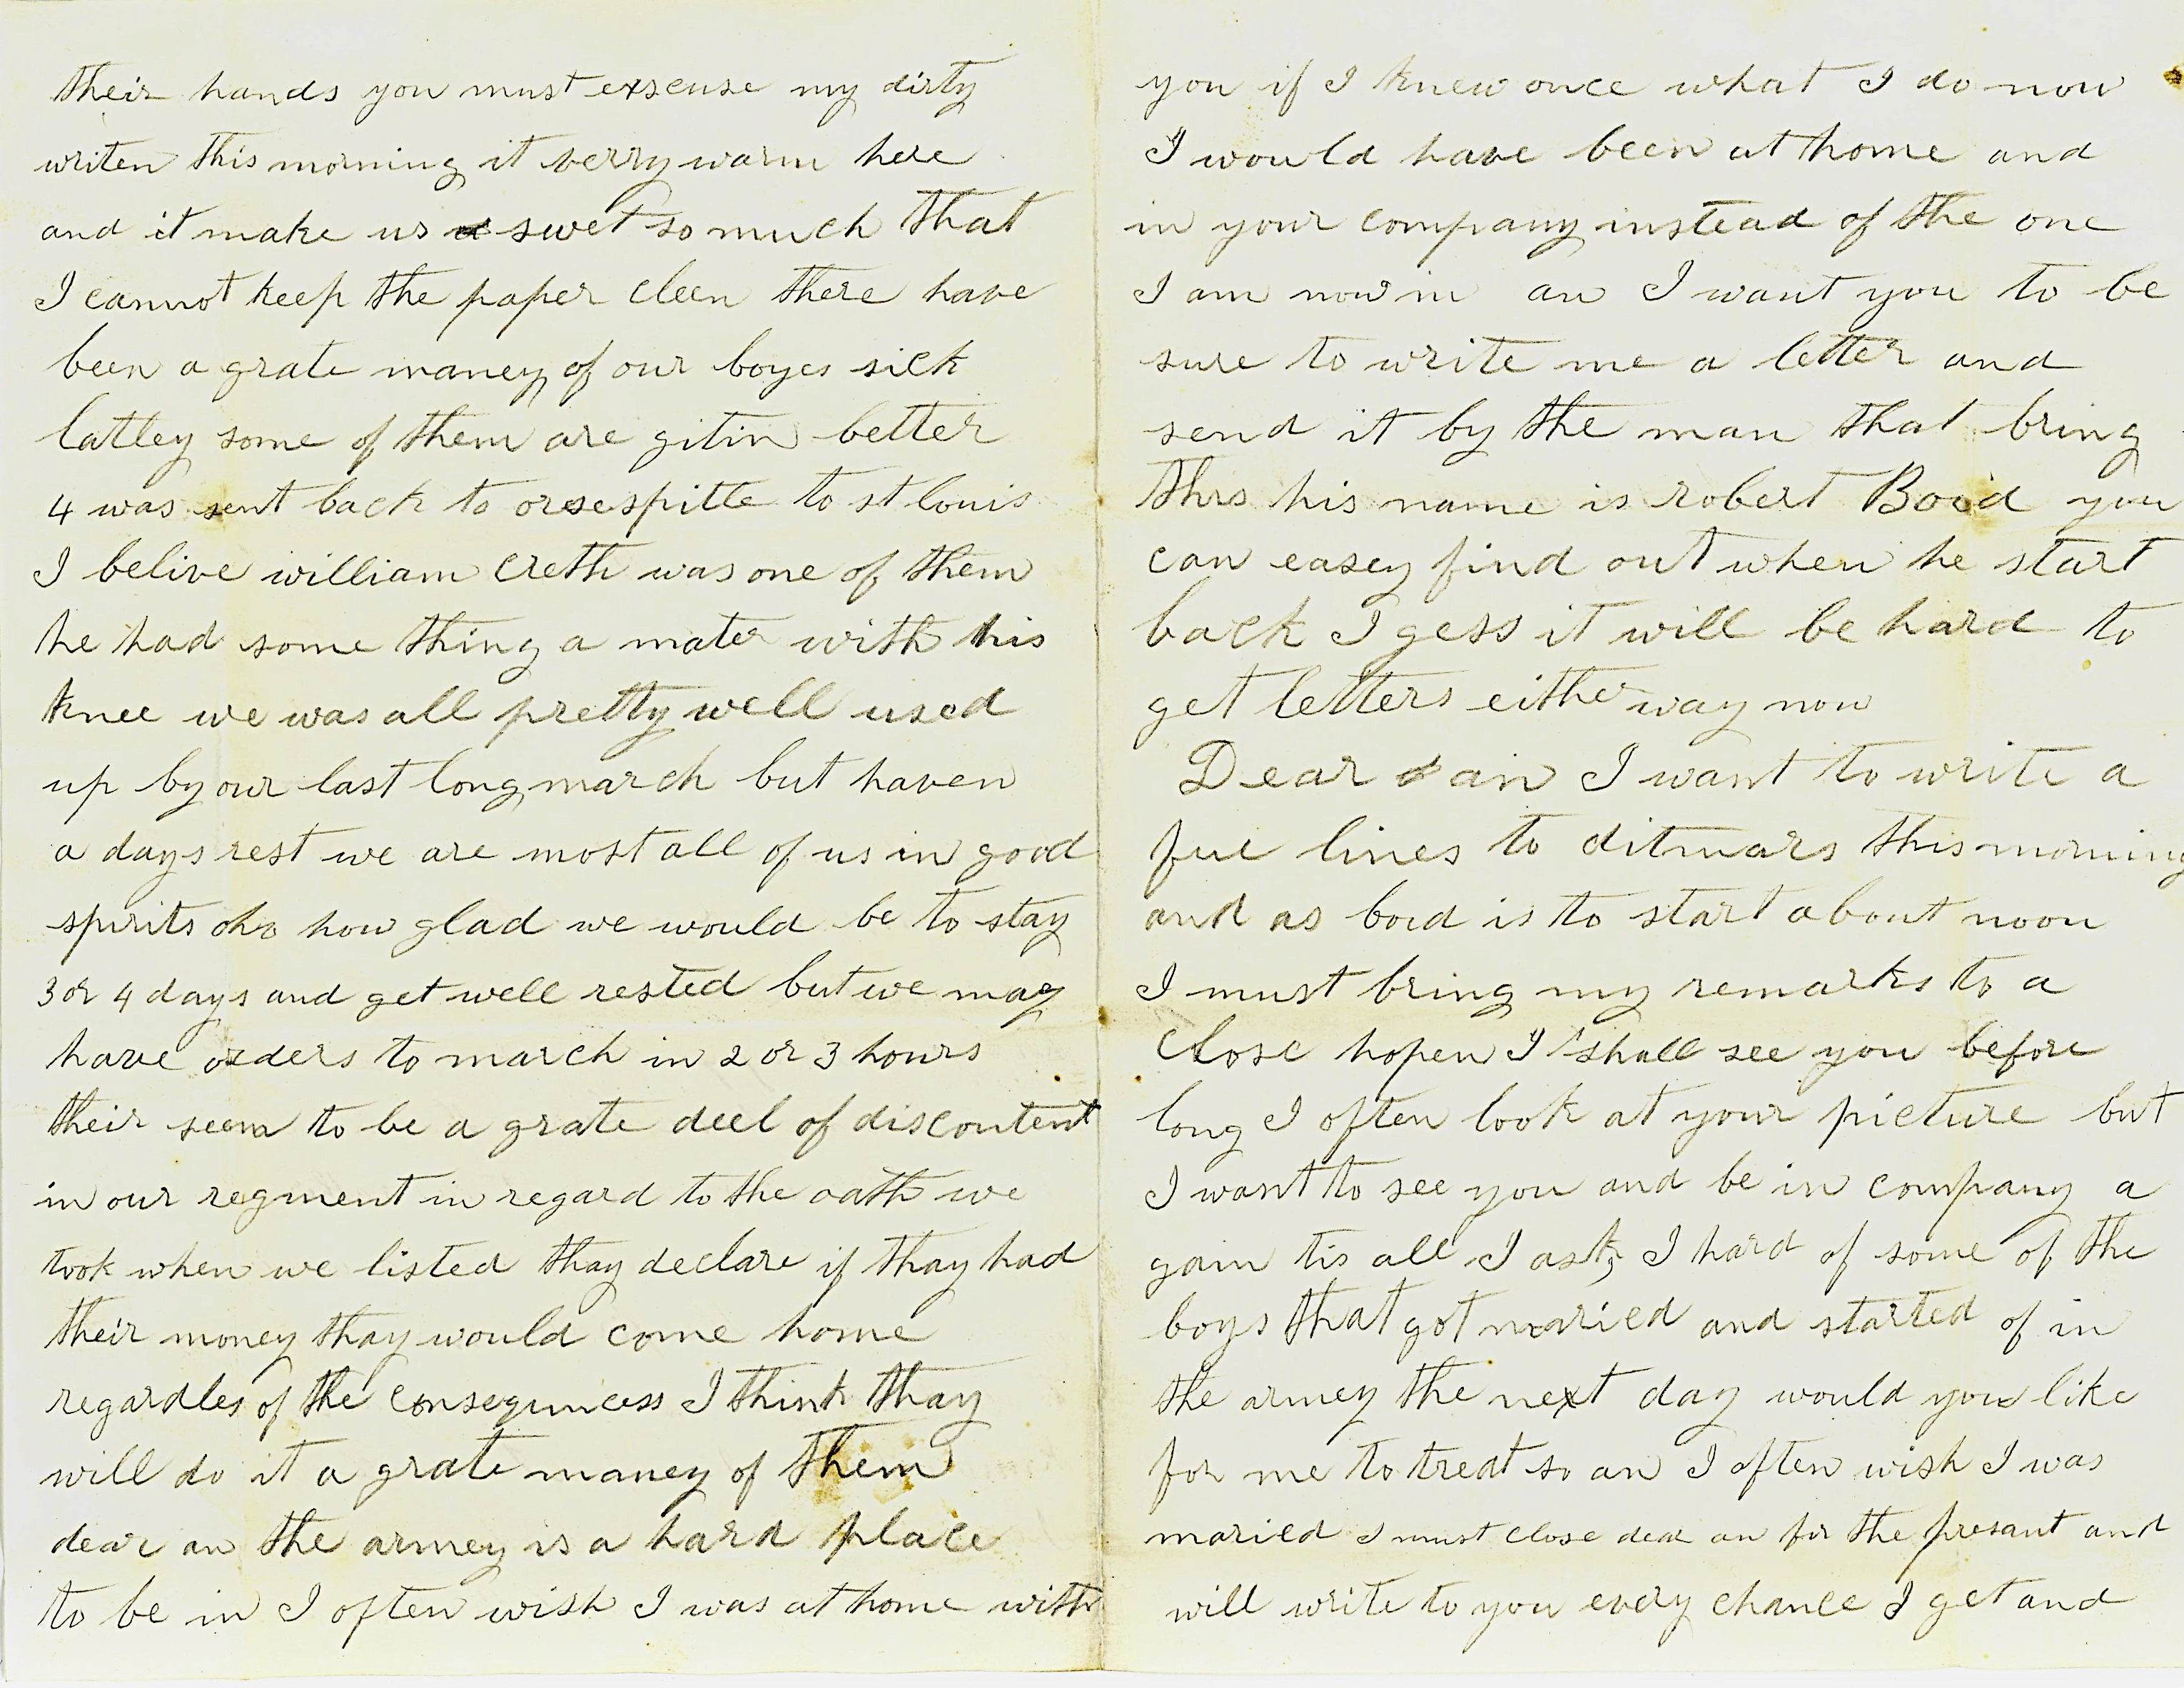 their hands you must exscuse my dirty
writen this morning it verry warm here
and it make us swet so much that
I cannot keep the paper cleen there have
been a grate maney of our boyes sick
latley some of them are gitin better
4 was sent back to orsespitle to st louis
I belive william Creth was one of them
he had some thing a mater with his
knee we was all pretty well used
up by our last long march but haven
a days rest we are most all of us in good
spirits oho how glad we would be to stay
3 or 4 days and get well rested but we may
have orders to march in 2 or 3 hours
their seem to be a grate deel of discontent
in our regment in regard to the oath we
took when we listed thay declare if thay had
their money thay would come home
regardles of the consequncess I think thay
will do it a grate maney of them
dear an the armey is a hard place
to be in I often wish I was at home with
you if I knew once what I do now
I would have been at home and
in your company instead of the one
I am now in an I want you to be
sure to write me a letter and
send it by the man that bring
this his name is robert Boid you
can easey find out when he start
back I gess it will be hard to
get letters either way now
Dear an I want to write a
fue lines to ditmars this morning
and as boid is to start about noon
I must bring my remarks to a
close hopen I shall see you before
long I often look at your picture but
I want to see you and be in company a
gain tis all I ask, I hard of some of the
boys that got maried and started of in
the armey the next day would you like
for me to treat so an I often wish I was
maried I must close dear an for the presant and
will write to you every chance I get and